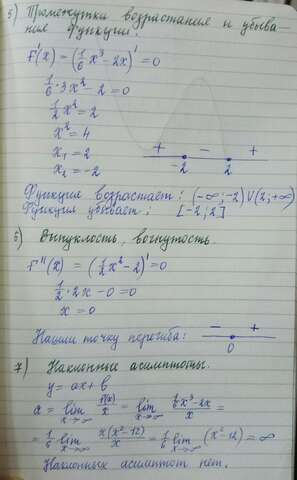 5) Промежутки возрастания и убыва-
ния функции.
F'(x) = (1/6 x³ - 2x)' = 0
1/6 · 3x² - 2 = 0
1/2 x² = 2
x² = 4
x₁ = 2
x₂ = -2
+ - +
-2 2
Функция возрастает: (-∞; -2) ∪ (2; +∞)
Функция убывает: [-2; 2]
6) Выпуклость, вогнутость.
F''(x) = (1/2 x² - 2)' = 0
1/2 · 2x - 0 = 0
x = 0
Нашли точку перегиба: - +
0
7) Наклонные асимптоты.
y = ax + b
a = lim x→∞ F(x)/x = lim x→∞ (1/6 x³ - 2x)/x =
= 1/6 lim x→∞ x(x² - 12)/x = 1/6 lim x→∞ (x² - 12) = ∞
Наклонных асимптот нет.